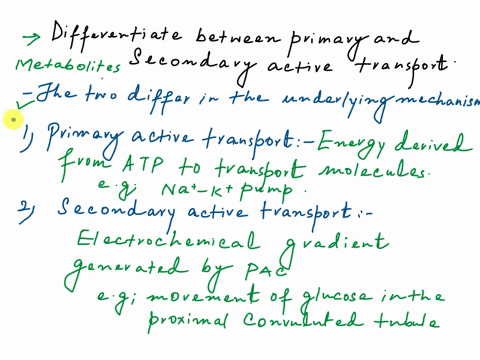 → Differentiate between primary and
Metabolites Secondary active transport.
- The two differ in the underlying mechanism
1) Primary active transport:- Energy derived
from ATP to transport molecules.
e.g; Na+-K+ pump.
2) Secondary active transport:-
Electrochemical gradient
generated by PAC
e.g; movement of glucose in the
proximal convuluted tubule